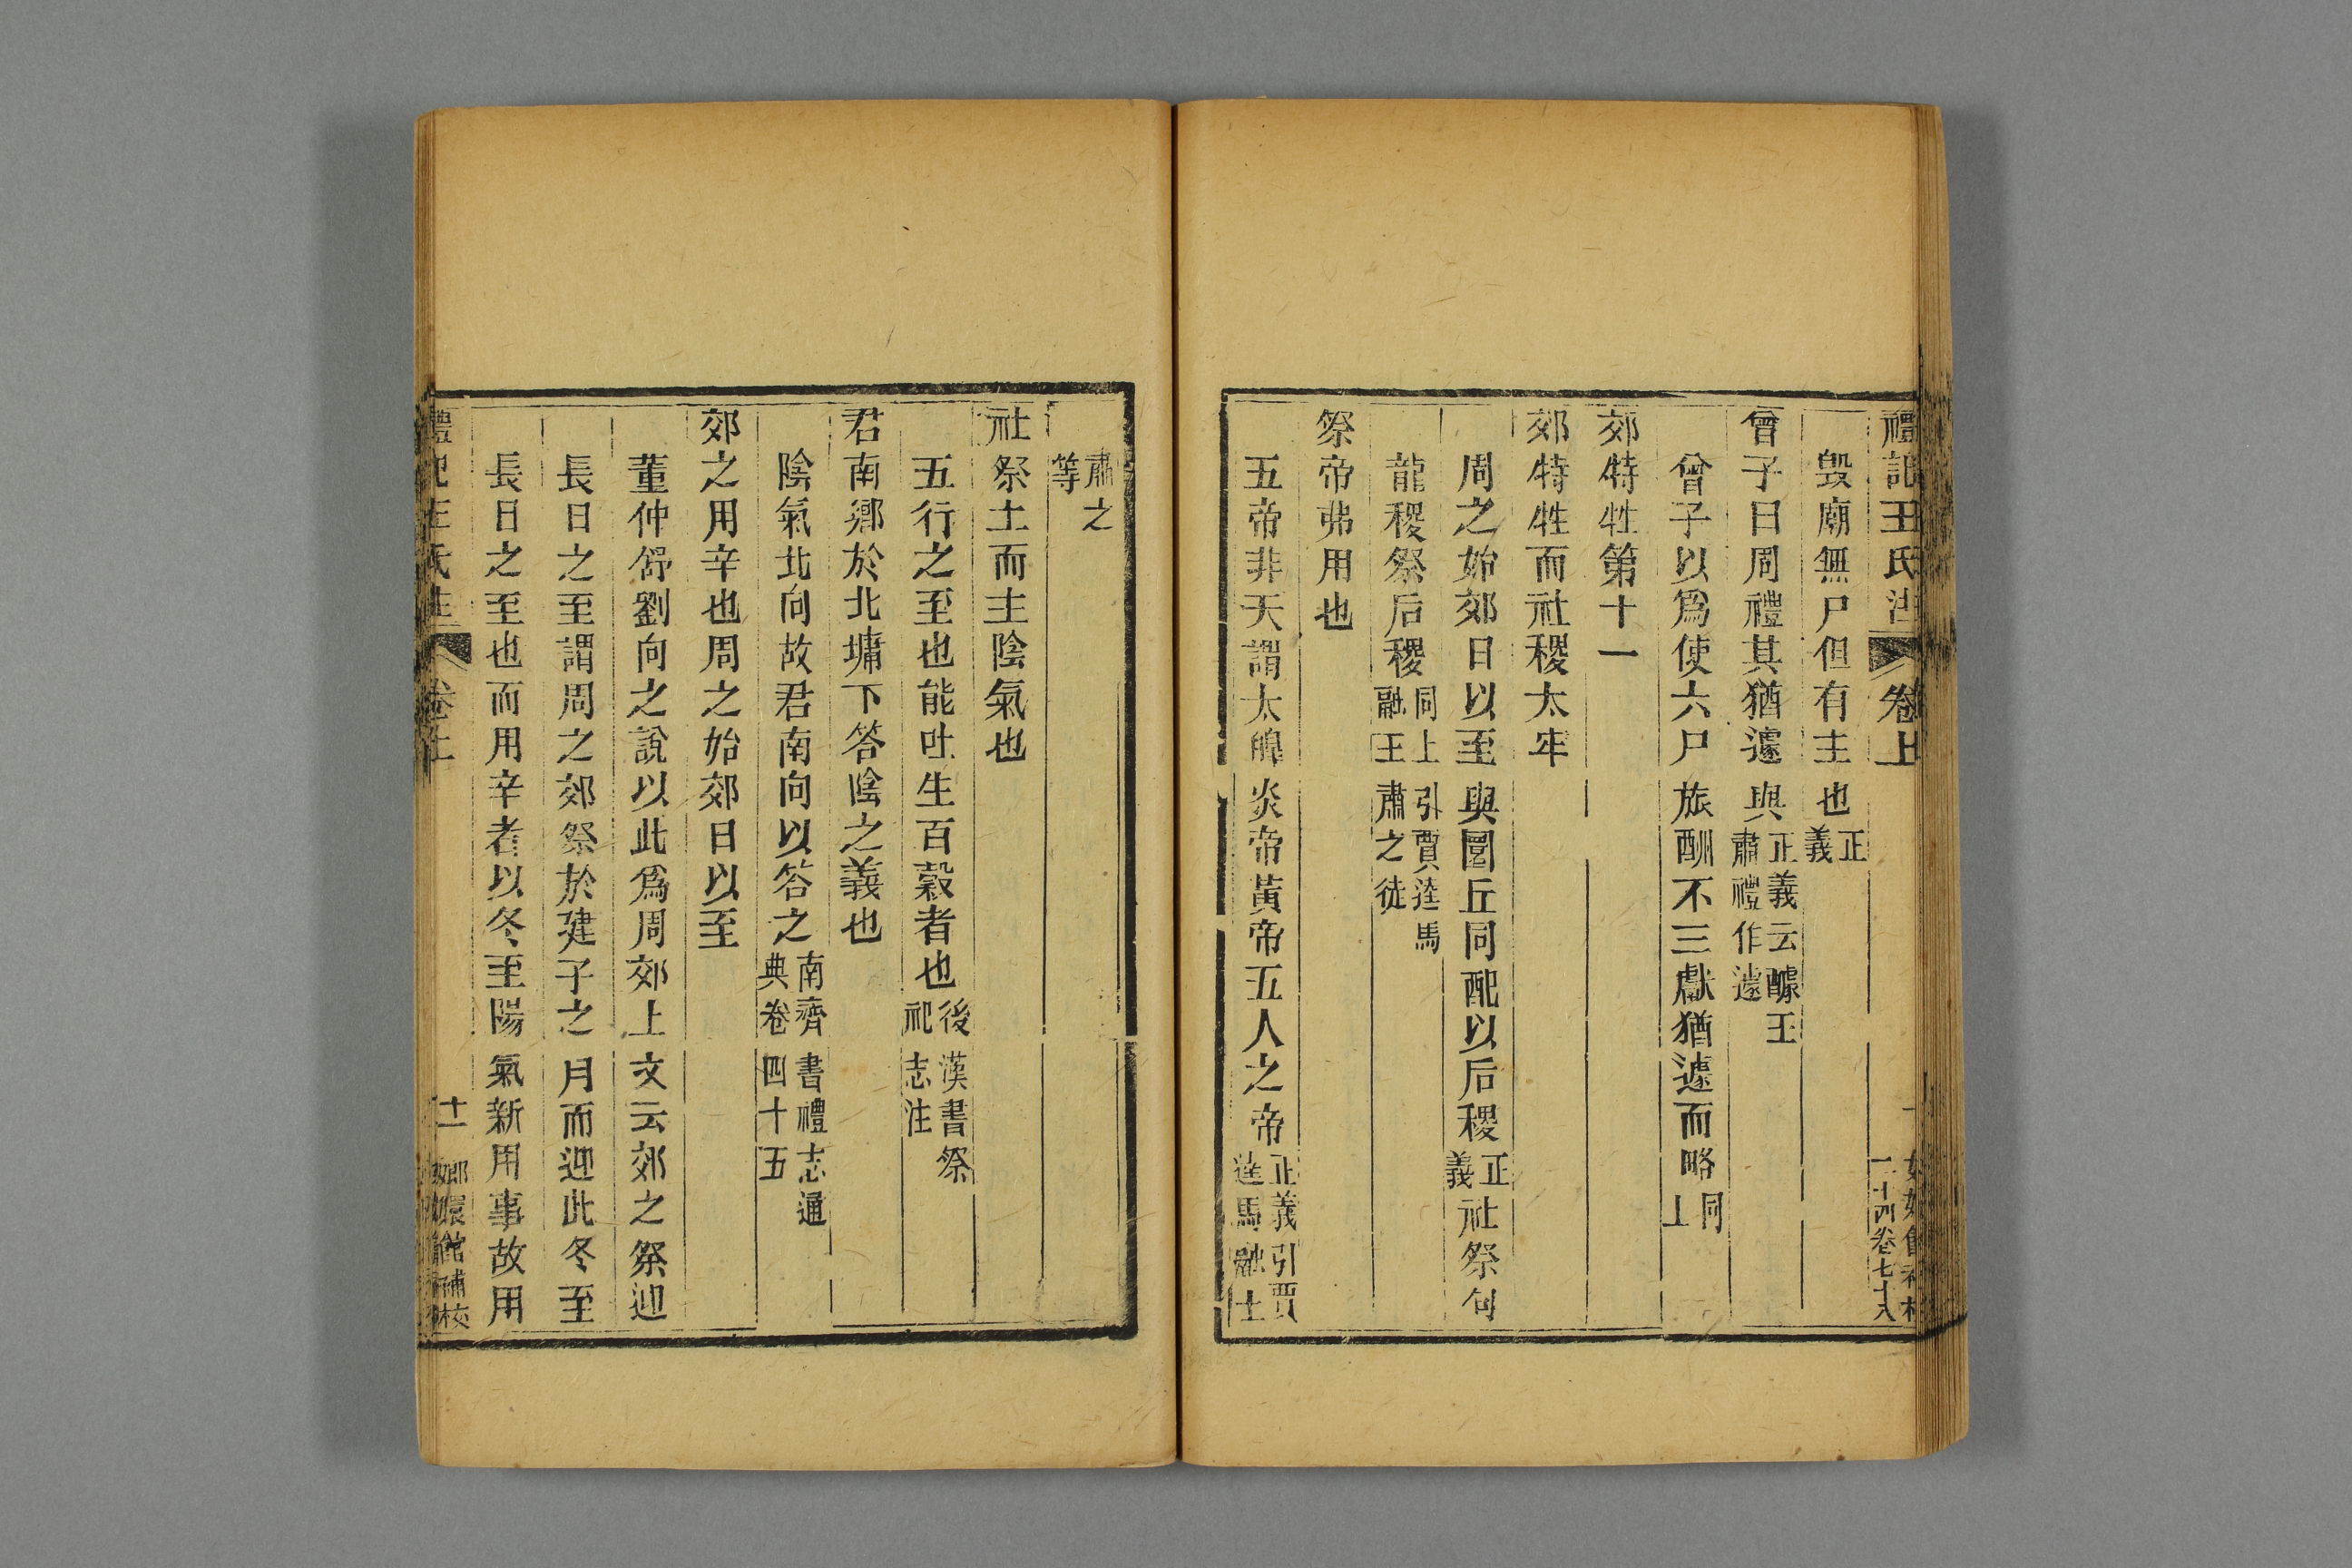 禮記王氏注 卷上
毁廟無尸但有主也正義
曾子曰周禮其猶遽與正義云醵王肅禮作遽
曾子以爲使六尸旅酬不三獻猶遽而略同上
郊特牲第十一
郊特牲而社稷太牢
周之始郊日以至與圜丘同配以后稷正義社祭句
龍稷祭后稷同上引賈逵馬融王肅之徒
祭帝弗用也
五帝非天謂太皞炎帝黃帝五人之帝正義引賈逵馬融王
肅之等
社祭土而主陰氣也
五行之至也能吐生百穀者也後漢書祭祀志注
君南鄉於北墉下答陰之義也
陰氣北向故君南向以答之南齊書禮志通典卷四十五
郊之用辛也周之始郊日以至
董仲舒劉向之說以此爲周郊上文云郊之祭迎
長日之至謂周之郊祭於建子之月而迎此冬至
長日之至也而用辛者以冬至陽氣新用事故用
禮記王氏注 卷上 十一 嫏嬛館補校